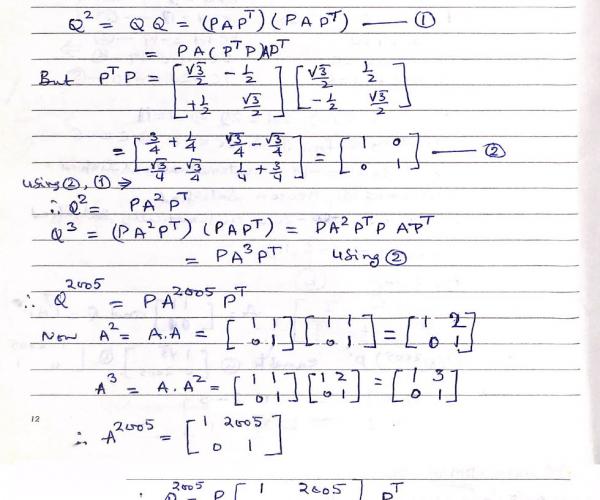 Q² = QQ = (PAPᵀ)(PAPᵀ) —— ①
= PA(PᵀP)APᵀ
But PᵀP = [√3/2 -1/2; +1/2 √3/2] [√3/2 1/2; -1/2 √3/2]
= [3/4 + 1/4 √3/4 - √3/4; √3/4 - √3/4 1/4 + 3/4] = [1 0; 0 1] —— ②
using ②, ① ⇒
∴ Q² = PA²Pᵀ
Q³ = (PA²Pᵀ)(PAPᵀ) = PA²PᵀP APᵀ
= PA³Pᵀ using ②
∴ Q²⁰⁰⁵ = PA²⁰⁰⁵Pᵀ
Now A² = A.A = [1 1; 0 1] [1 1; 0 1] = [1 2; 0 1]
A³ = A.A² = [1 1; 0 1] [1 2; 0 1] = [1 3; 0 1]
12
∴ A²⁰⁰⁵ = [1 2005; 0 1]
∴ Q²⁰⁰⁵ = P [1 2005 ] Pᵀ